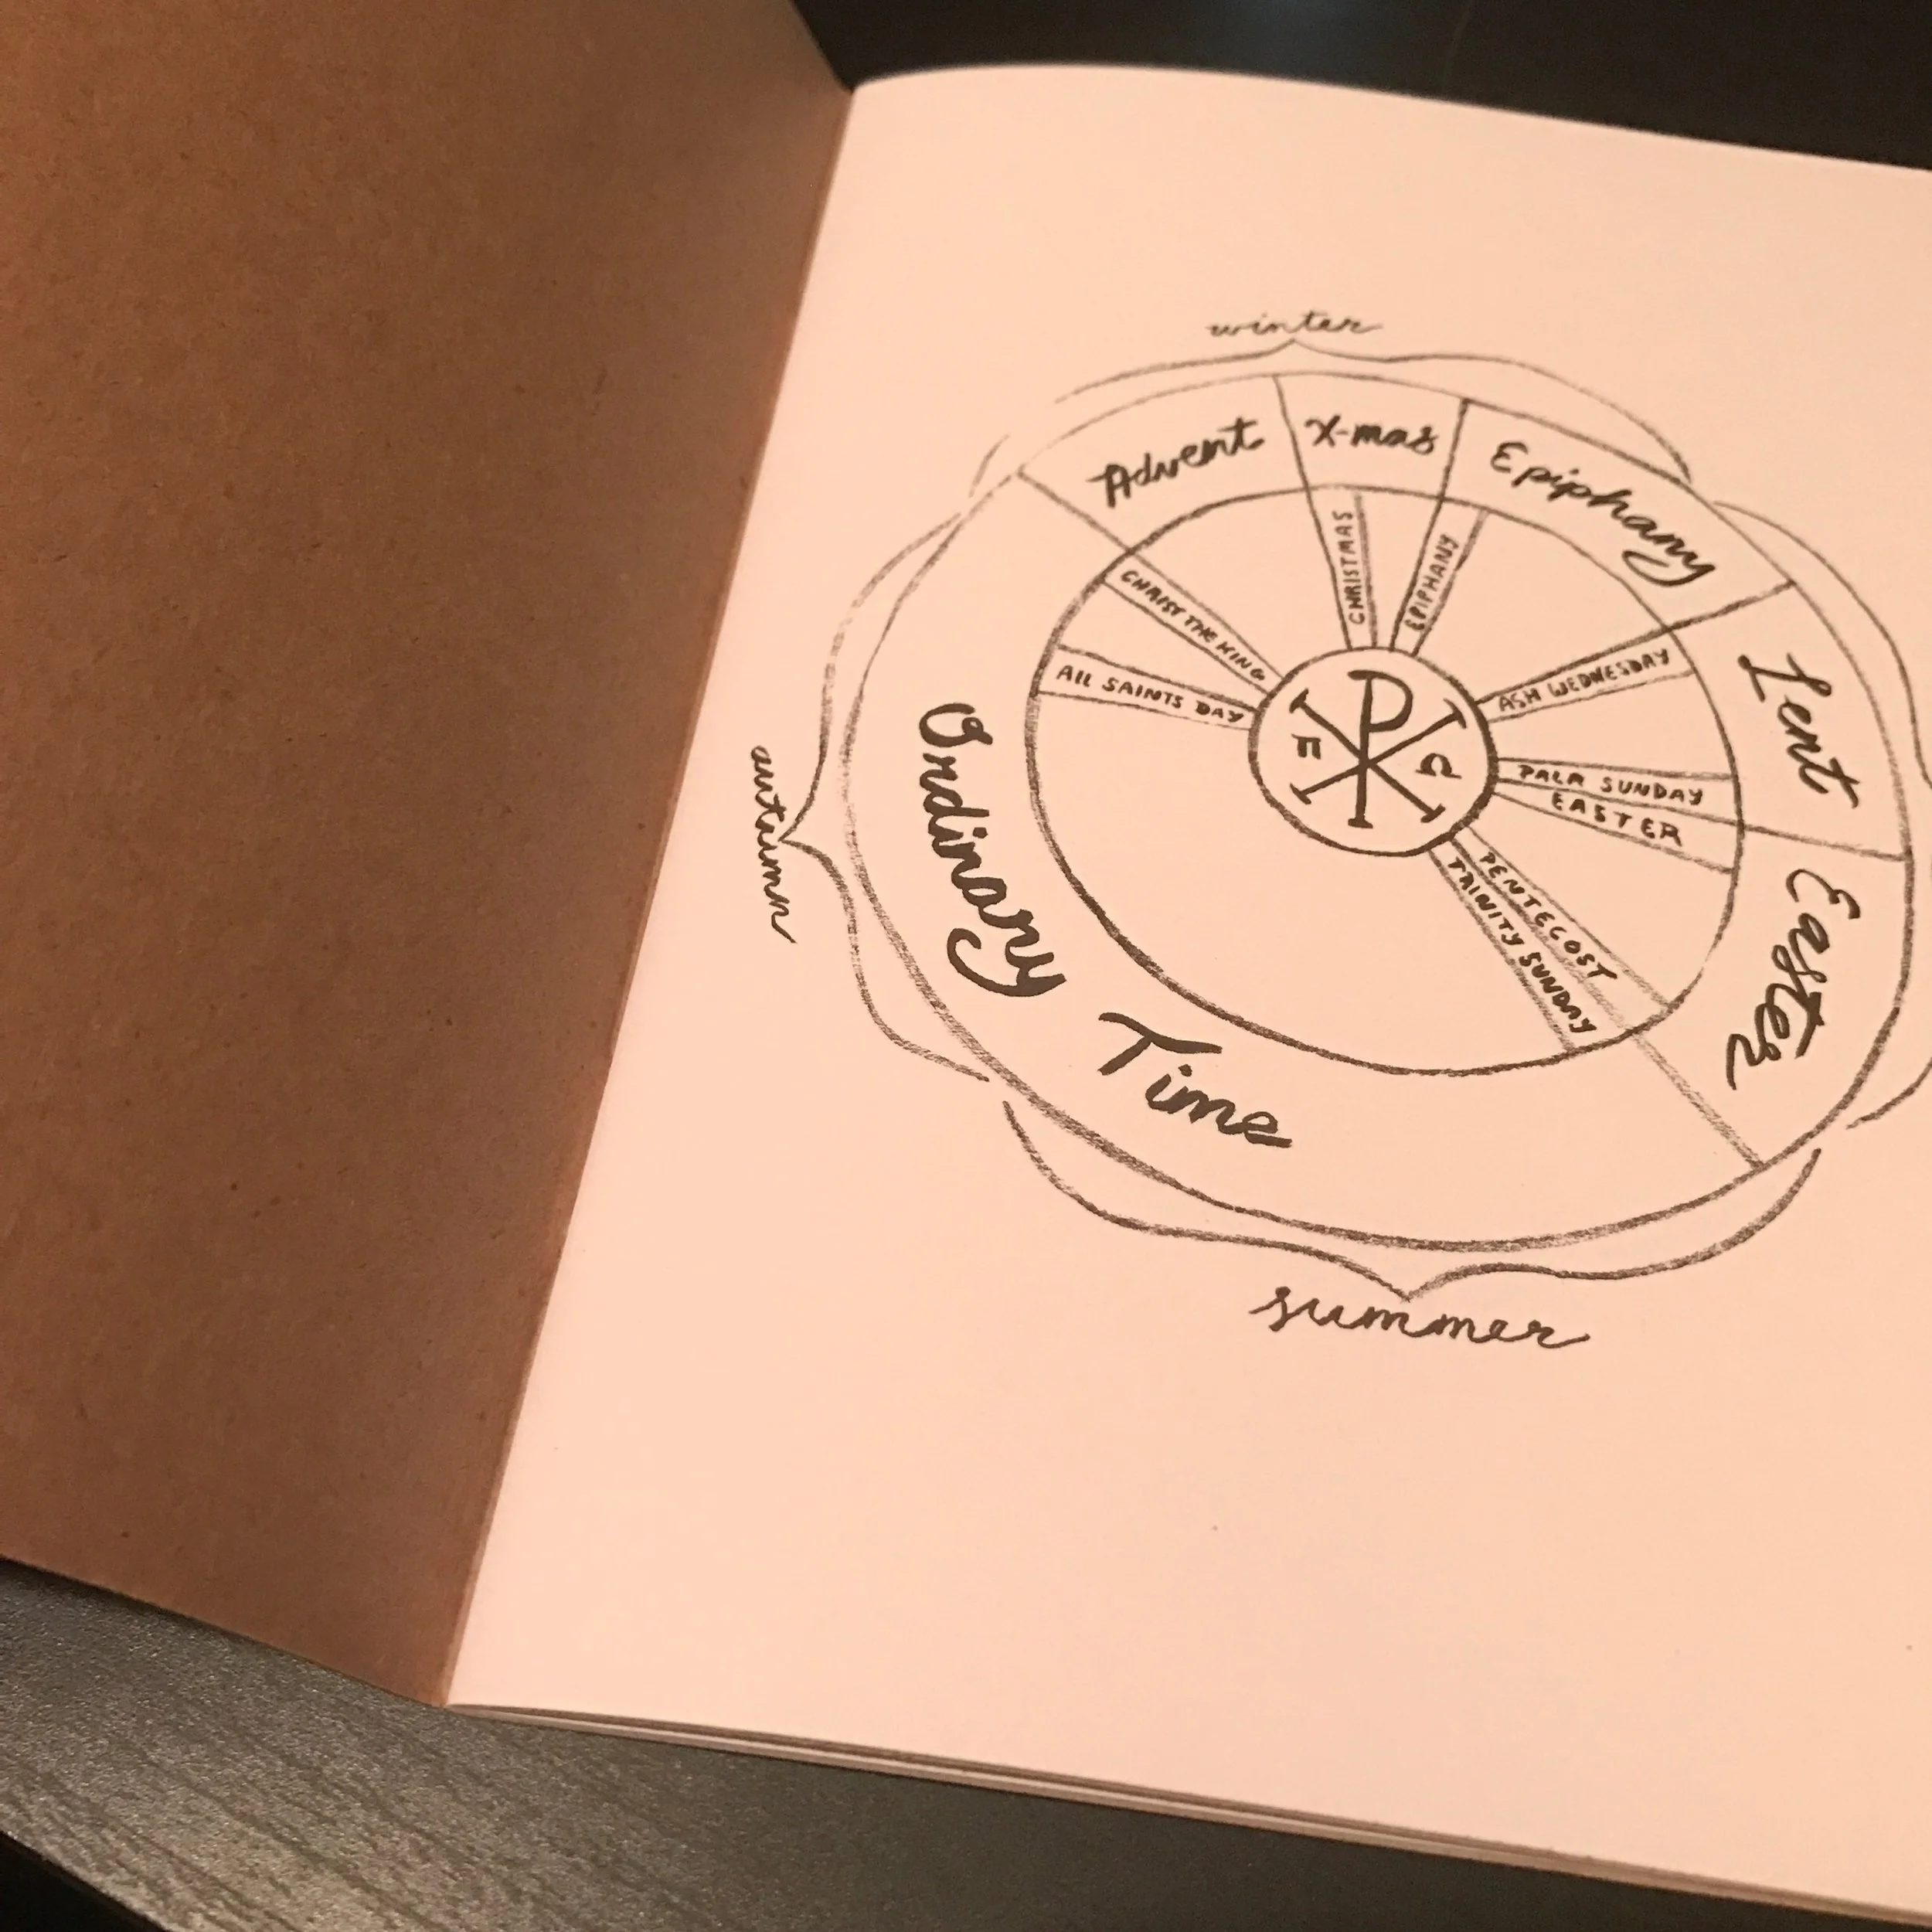 winter
Advent
X-mas
Epiphany
Lent
Easter
Ordinary Time
CHRISTMAS
EPIPHANY
ASH WEDNESDAY
PALM SUNDAY
EASTER
PENTECOST
TRINITY SUNDAY
ALL SAINTS DAY
CHRIST THE KING
autumn
summer